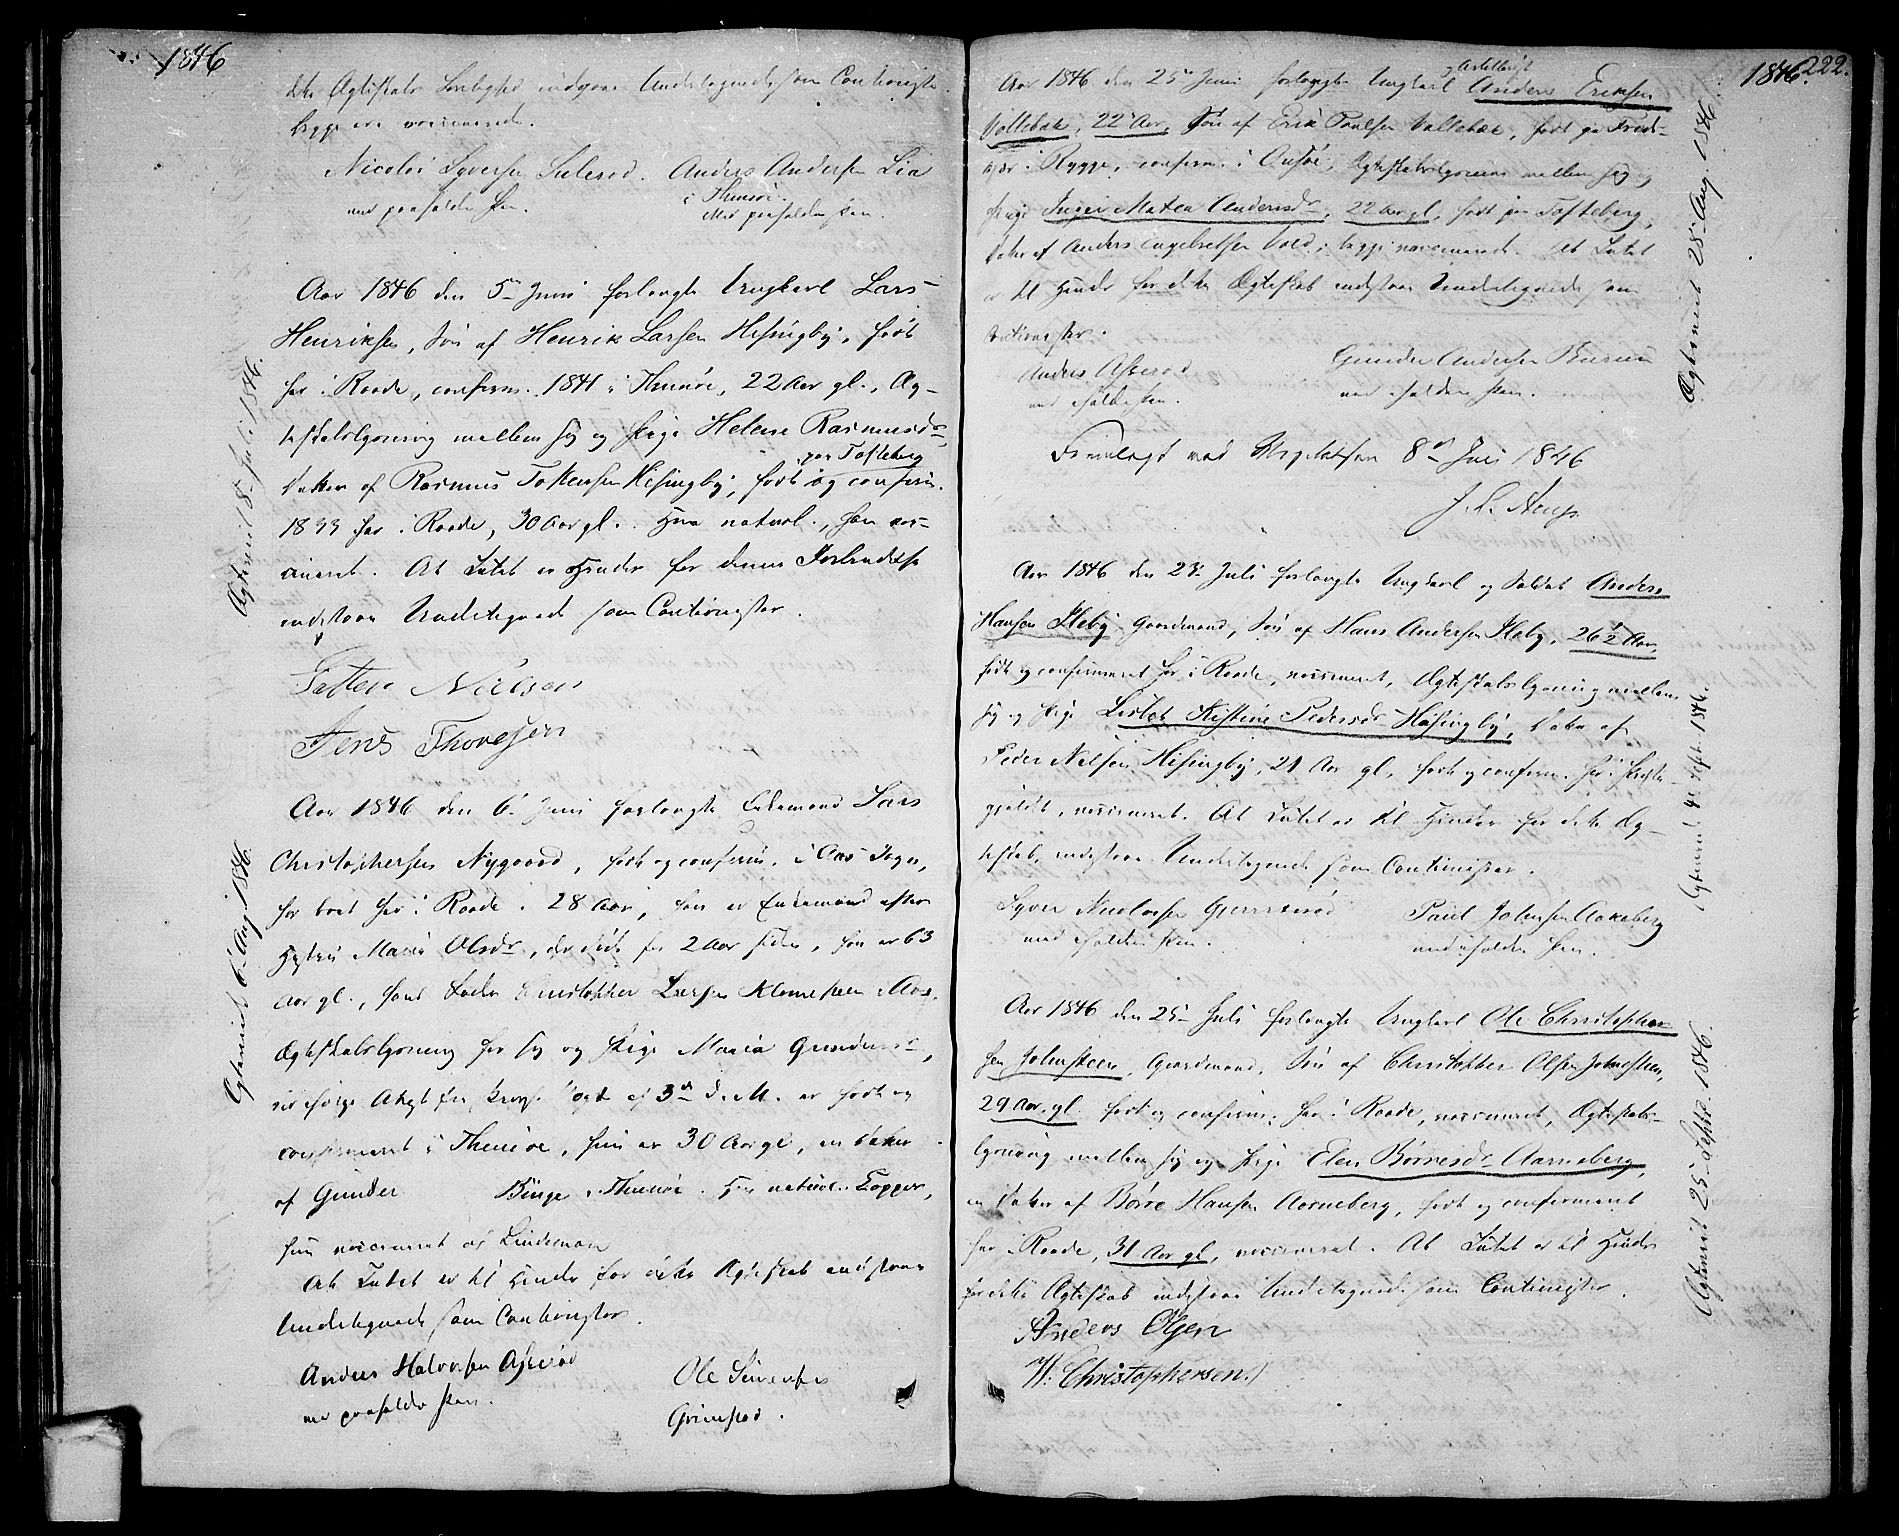 1846
dette Ægteskabs Lovlighed indgaae Undertegnede som Cautionister.
begge ere vaccinerede.
Nicolai Syversen Sulerød. Anders Andersen Lia
i Thunøe.
med paaholden Pen. Med paaholden Pen.
Aar 1846 den 5te Juni forlangte Ungkarl Lars
Henriksen, Søn af Henrik Larsen Hesingby, født
her i Raade, confirm. 1841 i Thunøe, 22 Aar gl., Æg-
teskabslysning mellem sig og Pige Helene Rasmusdr,
paa Tofteberg
Datter af Rasmus Torkensen Hesingby, født og confirm.
1833 her i Raade, 30 Aar gl. Hun naturl., han vac-
cineret. At Intet er Hinder for denne Forbindelse
indestaae Undertegnede som Cautionister.
Petter Nielsen
Jens Thoresen
Ægteviet 18de Juli 1846.
Aar 1846 den 6te Juni forlangte Enkemand Lars
Christophersen Nygaard, født og confirm. i Aas Sogn,
har boet her i Raade i 28 Aar, han er Enkemand efter
Hustru Maria Olsdr, der døde for 2 Aar siden, han er 63
Aar gl., hans Fader Christopher Larsen Klomsteen i Aas.
Ægteskabslysning for sig og Pige Maria Gundersdr,
som ifølge Attest fra af 3de d. M. er født og
confirmeret i Thunøe, hun er 30 Aar gl., en Datter
af Gunder Binge i Thunøe. Han naturl. Kopper,
hun vaccineret af Lindeman
At Intet er til Hinder for dette Ægteskab indestaae
Undertegnede som Cautionister.
Anders Halvorsen Aserød
med paaholden Pen.
Ole Simensen
Grimstad.
Ægteviet 6te Aug. 1846.
1846. 222.
og Artillerist
Aar 1846 den 25de Juni forlangte Ungkarl Anders Eriksen
Vollebæk, 22 Aar, Søn af Erik Paulsen Vollebæk, født paa
i Rygge, confirm. i Onsøe, Ægteskabslysning mellem sig og
Pige Inger Matea Andersdr, 22 Aar gl., født paa Tofteberg,
Datter af Anders Engebretsen Vold, begge vaccinerede. At Intet
er til Hinder for dette Ægteskab indestaae Undertegnede som
Cautionister.
Anders Aserød
med iholden Pen.
Gunder Andersen
med iholden Pen.
Fremlagt ved Visitatsen 8de Juli 1846
Ægteviet 28de Aug. 1846.
Aar 1846 den 24de Juli forlangte Ungkarl og Soldat Anders
Hansen Huseby Gaardmand, Søn af Hans Andersen Huseby, 26½ Aar,
født og confirmeret her i Raade, vaccineret, Ægteskabslysning mellem
sig og Pige Lisbet Kistine Pedersdr Hesingby, Datter af
Peder Nilsen Hesingby, 21 Aar gl., født og confirm. her i Præste-
gjældet, vaccineret. At Intet er til Hinder for dette Æg-
teskab, indestaae Undertegnede som Cautionister.
Syver Nicolaisen
med iholden Pen.
Paul Johnsen Aakeberg
med iholden Pen.
Ægteviet 4de Sept. 1846.
Aar 1846 den 25de Juli forlangte Ungkarl Ole Christopher-
sen Jolmsteen, Gaardmand, Søn af Christopher Olsen Jolmsteen,
29 Aar gl. født og confirm. her i Raade, vaccineret, Ægteskabs-
lysning mellem sig og Pige Elen Børresdr Aarneberg,
en Datter af Børre Hansen Aarneberg, født og confirmeret
her i Raade, 31 Aar gl., vaccineret. At Intet er til Hinder
for dette Ægteskab indestaae Undertegnede som Cautionister.
Anders Olsen
W. Christophersen
Ægteviet 25de Septr. 1846.